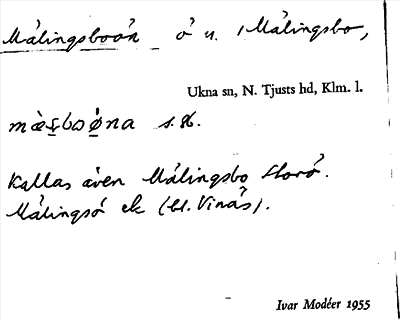 Målingsboön ö n. Målingsbo,
Ukna sn, N. Tjusts hd, Klm. l.
s. st.
Kallas även Målingsbo Storö.
Målingsö ek (bl. Vinås).
Ivar Modéer 1955